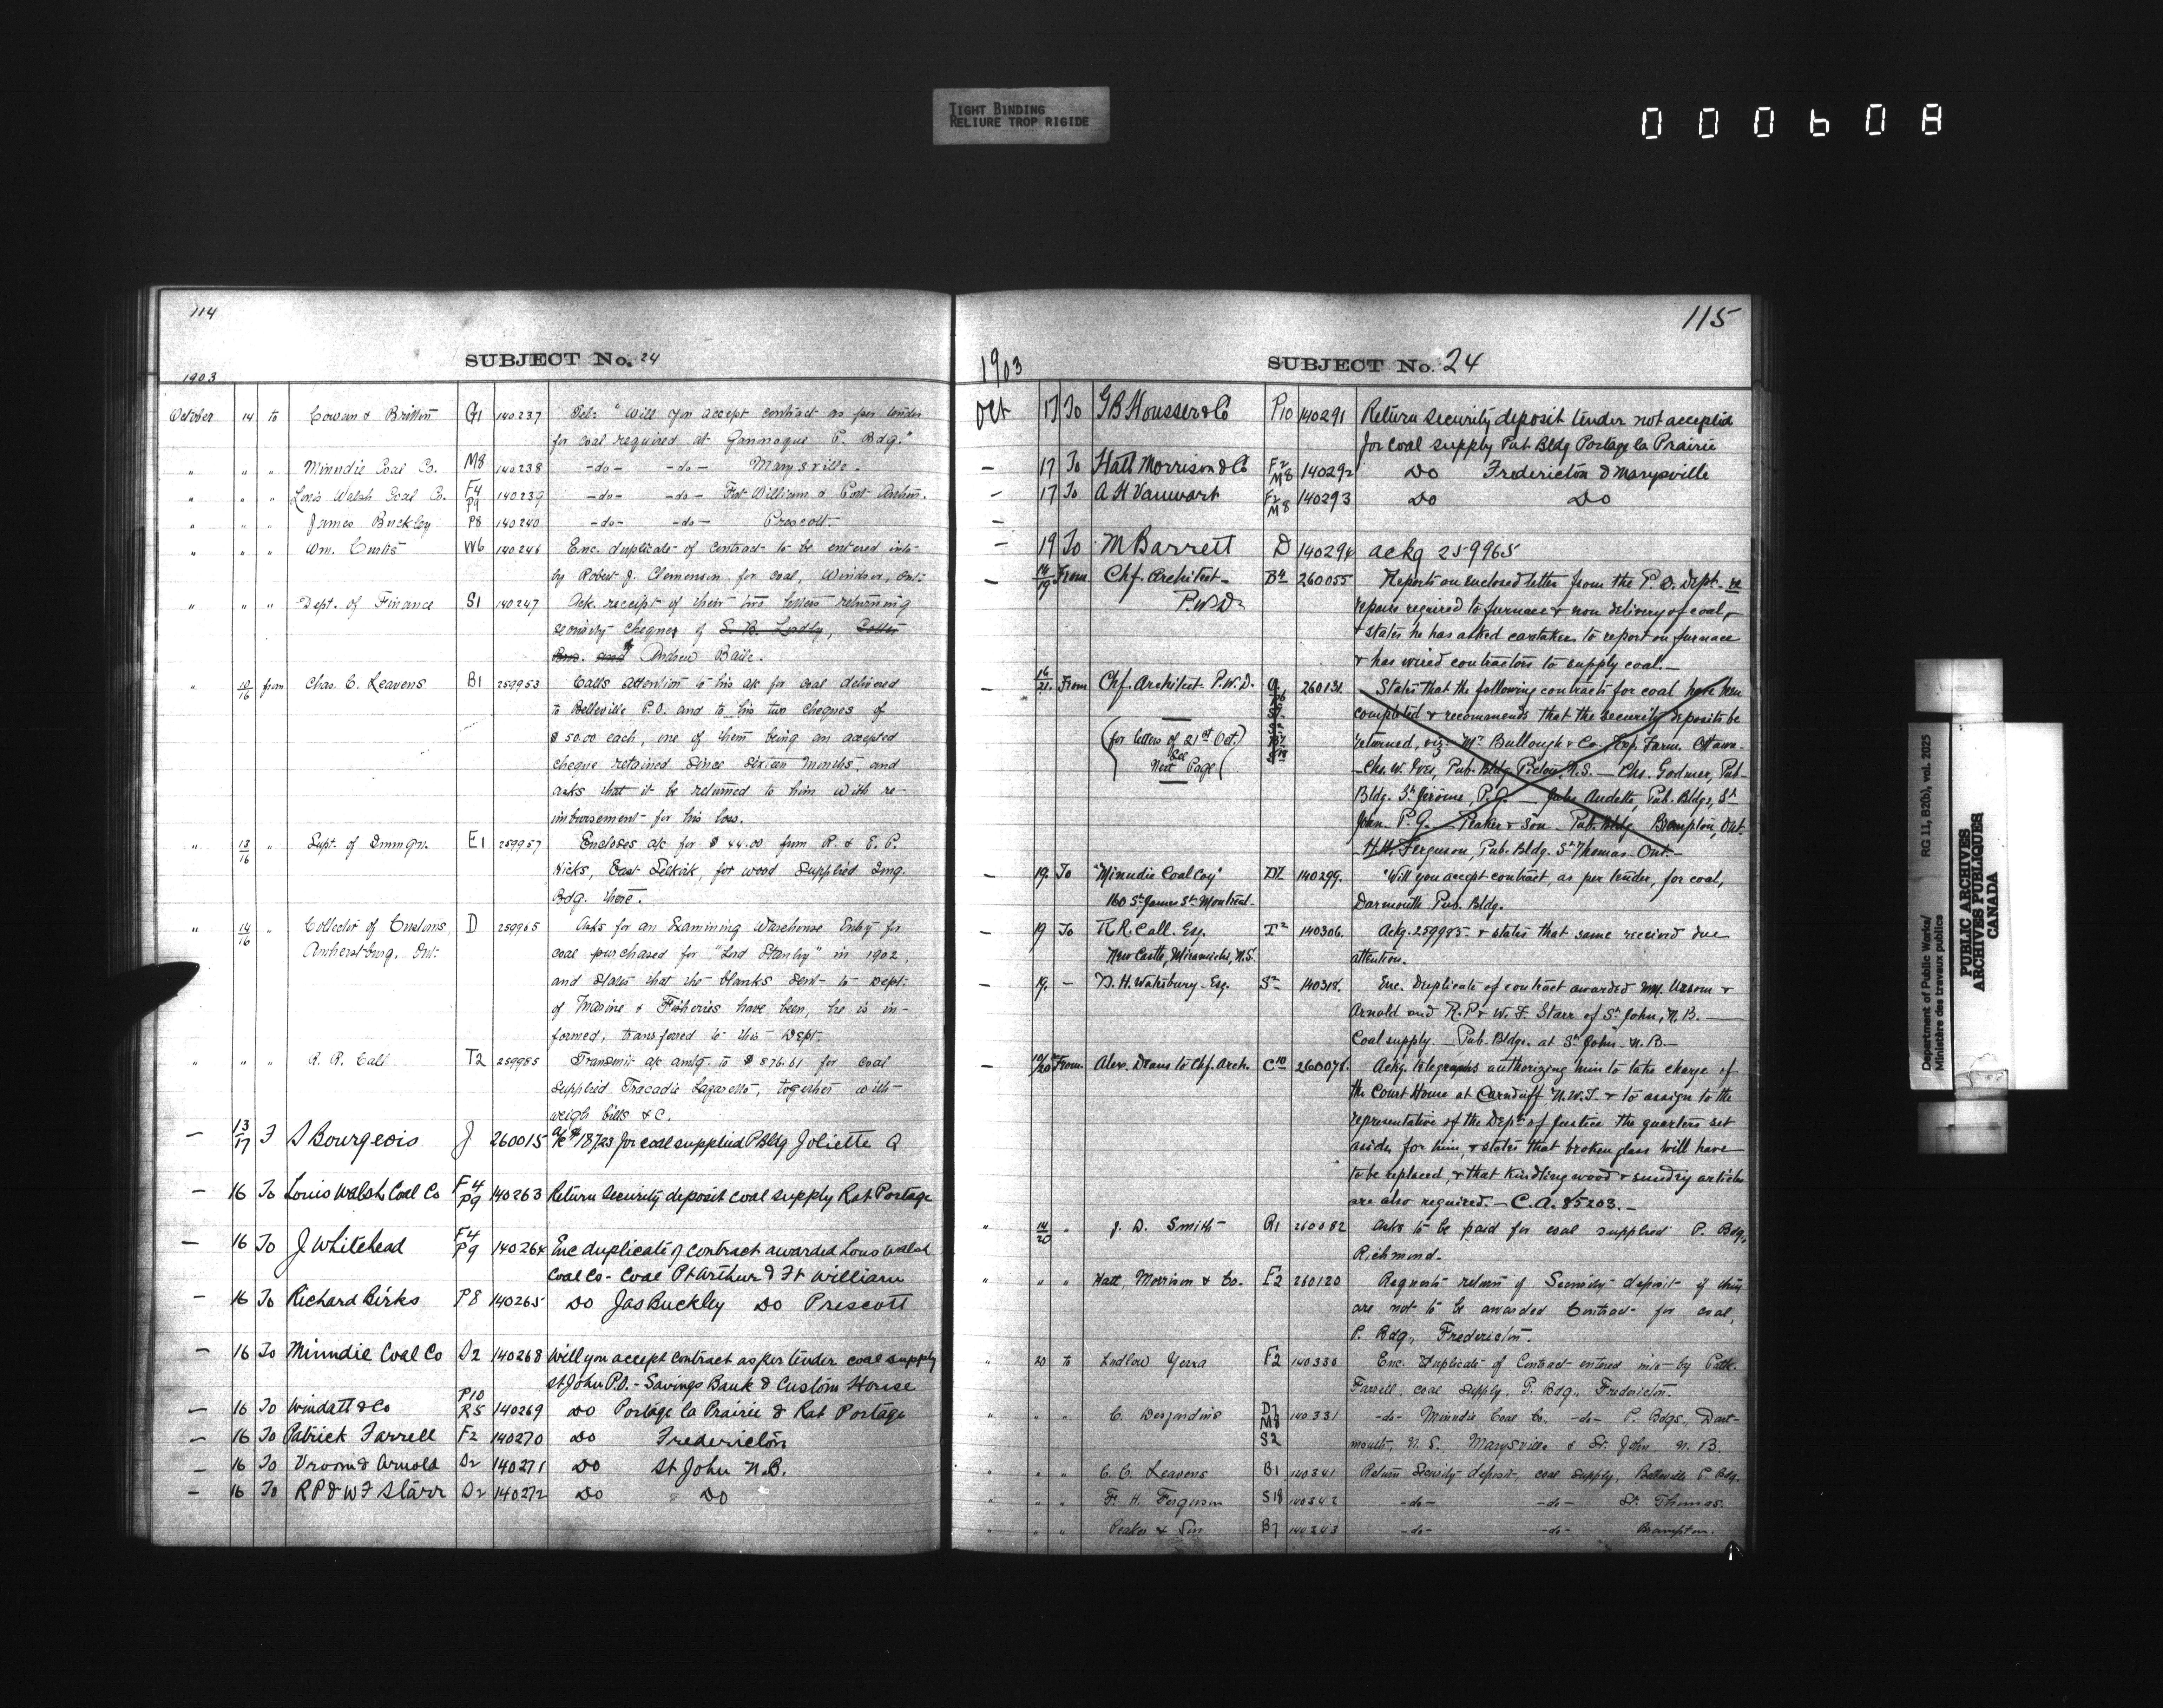 TIGHT BINDING
RELIURE TROP RIGIDE
000608
114
SUBJECT No. 24
1903
October 14 to Cowan & Britton G1 140237 Tel: "Will you accept contract as per tender
for coal required at Gannoque P. Bdg."
" " " Minudie Coal Co. M8 140238 -do- -do- Marysville.
" " " Louis Walsh Coal Co. F4 P9 140239 -do- -do- Fort William & Port Arthur.
" " " James Buckley P8 140240 -do- -do- Prescott.
" " " Wm. Curtis W6 140246 Enc. duplicate of contract to be entered into
by Robert J. Clemenson for coal, Windsor, Ont:
" " " Dept. of Finance S1 140247 Ack. receipt of their two letters returning
security cheques of
Andrew Baile.
" 10/16 from Chas. C. Leavens B1 259953 Calls attention to his a/c for coal delivered
to Belleville P.O. and to his two cheques of
$50.00 each, one of them being an accepted
cheque retained since sixteen months, and
asks that it be returned to him with re-
imbursement for his loss.
" 13/16 " Supt. of Immgn. E1 259957 Encloses a/c for $44.00 from R. & E. C.
Hicks, East Selkirk, for wood supplied Img.
Bdg. there.
" 14/16 " Collector of Customs, D 259965 Asks for an Examining Warehouse Entry for
Amherstburg, Ont: coal purchased for "Lord Stanley" in 1902,
and states that the blanks sent to Dept:
of Marine & Fisheries have been, he is in-
formed, transferred to this Dept.
" " " R. R. Call T2 259985 Transmit a/c amtg. to $876.61 for coal
supplied Tracadie Lazaretto, together with
weigh bills &c.
— 13/17 F S Bourgeois J 260015 a/c $187.23 for coal supplied P Bldg Joliette Q
— 16 To Louis Walsh Coal Co F4 P9 140263 Return Security deposit coal supply Rat Portage
— 16 To J Whitehead F4 P9 140264 Enc duplicate of contract awarded Louis Walsh
Coal Co - Coal Pt Arthur & Ft William
— 16 To Richard Birks P8 140265 Do Jas Buckley Do Prescott
— 16 To Minudie Coal Co S2 140268 Will you accept contract as per tender coal supply
St John P.O. - Savings Bank & Custom House
— 16 To Windatt & Co P10 R5 140269 Do Portage la Prairie & Rat Portage
— 16 To Patrick Farrell F2 140270 Do Fredericton
— 16 To Vroom & Arnold S2 140271 Do St John N.B.
— 16 To R P & W F Starr S2 140272 Do Do
115
1903 SUBJECT No. 24
Oct 17 To G B Housser & Co P10 140291 Return security deposit tender not accepted
for coal supply Pub Bldg Portage la Prairie
— 17 To Hatt Morrison & Co F2 M8 140292 Do Fredericton & Marysville
— 17 To A H Vanwart F2 M8 140293 Do Do
—
— 19 To M Barrett D 140294 ackg 259965
— 14/19 From Chf. Architect B4 260055 Reports on enclosed letter from the P.O. Dept. re
P.W.D. repairs required to furnace & non delivery of coal,
& states he has asked caretaker to report on furnace
& has wired contractors to supply coal.—
— 16/21 From Chf. Architect P.W.D. 260131. States that the following contracts for coal have been
completed & recommends that the security deposits be
(for letters of 21st Oct. returned, viz- McCullough & Co. Exp. Farm. Ottawa-
See - Chs. W. Ives, Pub. Bldg Pictou, N.S. — Chs. Godmer, Pub-
Next Page) Bldg. St Jerome, P.Q. — Jules Audette Pub. Bldgs, St
Jean P.Q. — Peaker & Son - Pub. Bldg Brampton, Ont.
- H.H. Ferguson, Pub. Bldg. St Thomas Ont.—
— 19. To "Minudie Coal Coy" 140299. "Will you accept contract, as per tender, for coal,
160 St James St- Montreal. Darmouth Pub. Bldg.
— 19 To R.R. Call. Esq. T2 140306. Ackg. 259985 - & states that same received due
New Castle, Miramichi, N.S. attention.
— 19. — D. H. Waterbury Esq. S2 140318. Enc. Duplicate of contract awarded MM. Vroom &
Arnold and R.P & W. F. Starr of St John, N.B. —
Coal supply. - Pub. Bldgs. at St John - N.B —
— 10/20 From Alex. Deans to Chf. Arch. C10 260078. Ackg. telegraphs authorizing him to take charge of
the Court House at Carnduff N.W.T. & to assign to the
representative of the Dept of Justice the quarters set
aside for him, & states that broken glass will have
to be replaced, & that Kindling wood & sundry articles
are also required. — C.A. 85203. —
" 14/20 " J. D. Smith R1 260082 Asks to be paid for coal supplied P. Bdg,
Richmond.
" " " Hatt, Morrison & Co. F2 260120 Requests return of Security deposit if they
are not to be awarded Contract for coal,
P. Bdg., Fredericton.
" 20 to Ludlow Yerxa F2 140330 Enc. Duplicate of Contract entered into by Patk.
Farrell, coal supply, P. Bdg., Fredericton.
" " " C. Desjardins D7 M8 S2 140331 -do- Minudie Coal Co. -do- P. Bdgs, Dart-
mouth, N.S., Marysville & St. John, N.B.
" " " C. C. Leavens B1 140341 Return Security deposit, coal supply, Belleville P. Bdg.
" " " F. H. Ferguson S18 140342 -do- -do- St. Thomas.
" " " Peaker & Son B7 140343 -do- -do- Brampton.
Department of Public Works/
Ministère des travaux publics
RG 11, B2(b), vol. 2025
PUBLIC ARCHIVES
ARCHIVES PUBLIQUES
CANADA